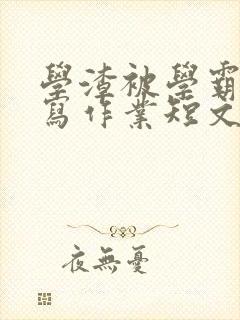 學渣被學霸
寫作業短文
夜無憂